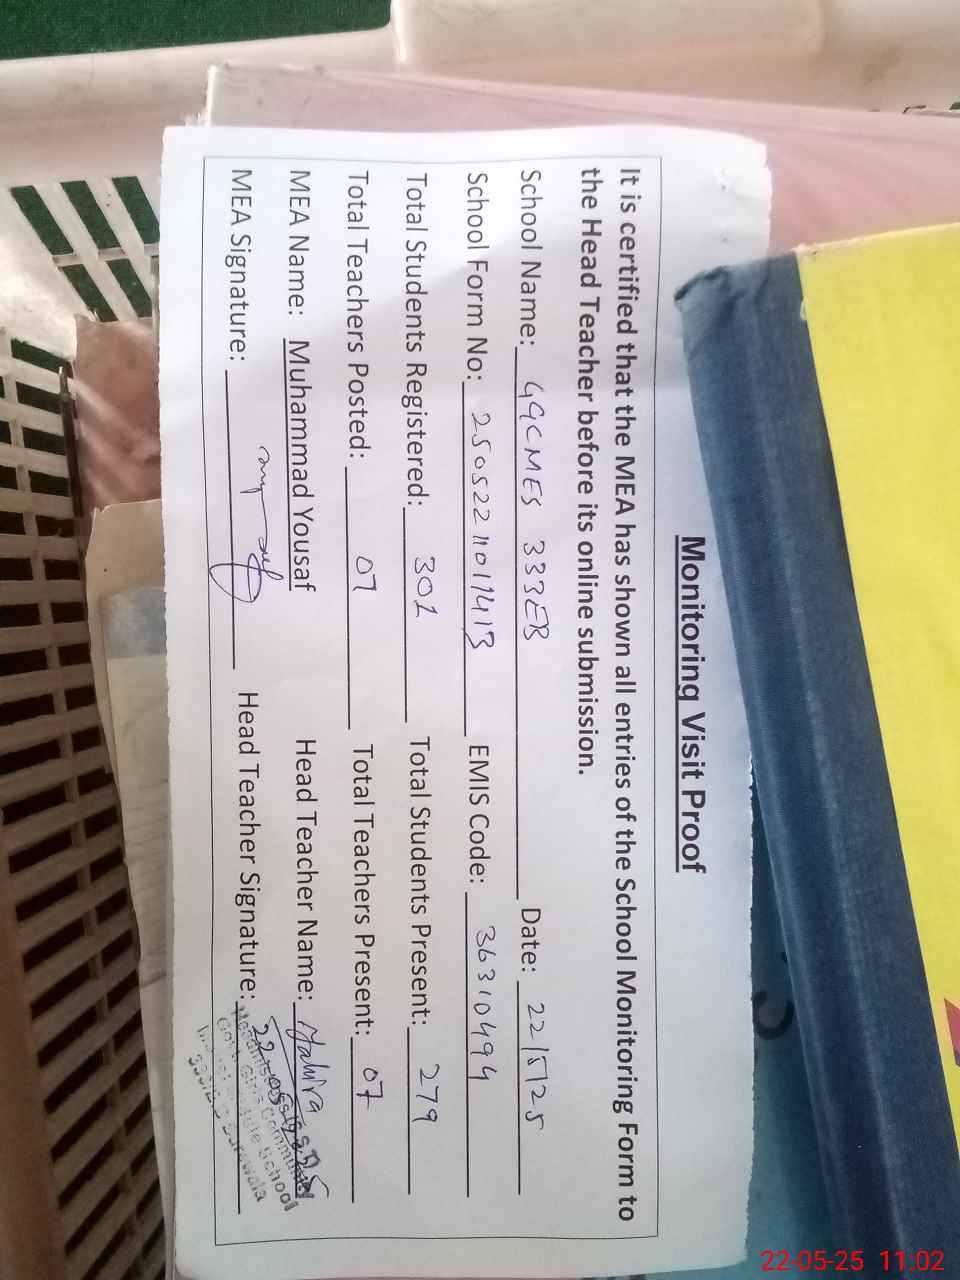 Monitoring Visit Proof
It is certified that the MEA has shown all entries of the School Monitoring Form to
the Head Teacher before its online submission.
School Name: GGCMES 333EB Date: 22/5/25
School Form No: EMIS Code: 36310494
Total Students Registered: 301 Total Students Present: 279
Total Teachers Posted: 07 Total Teachers Present: 07
MEA Name: Muhammad Yousaf Head Teacher Name: Tahira
MEA Signature: Head Teacher Signature:
Headmistress
Govt. Girls Community
School
22-05-25 11:02